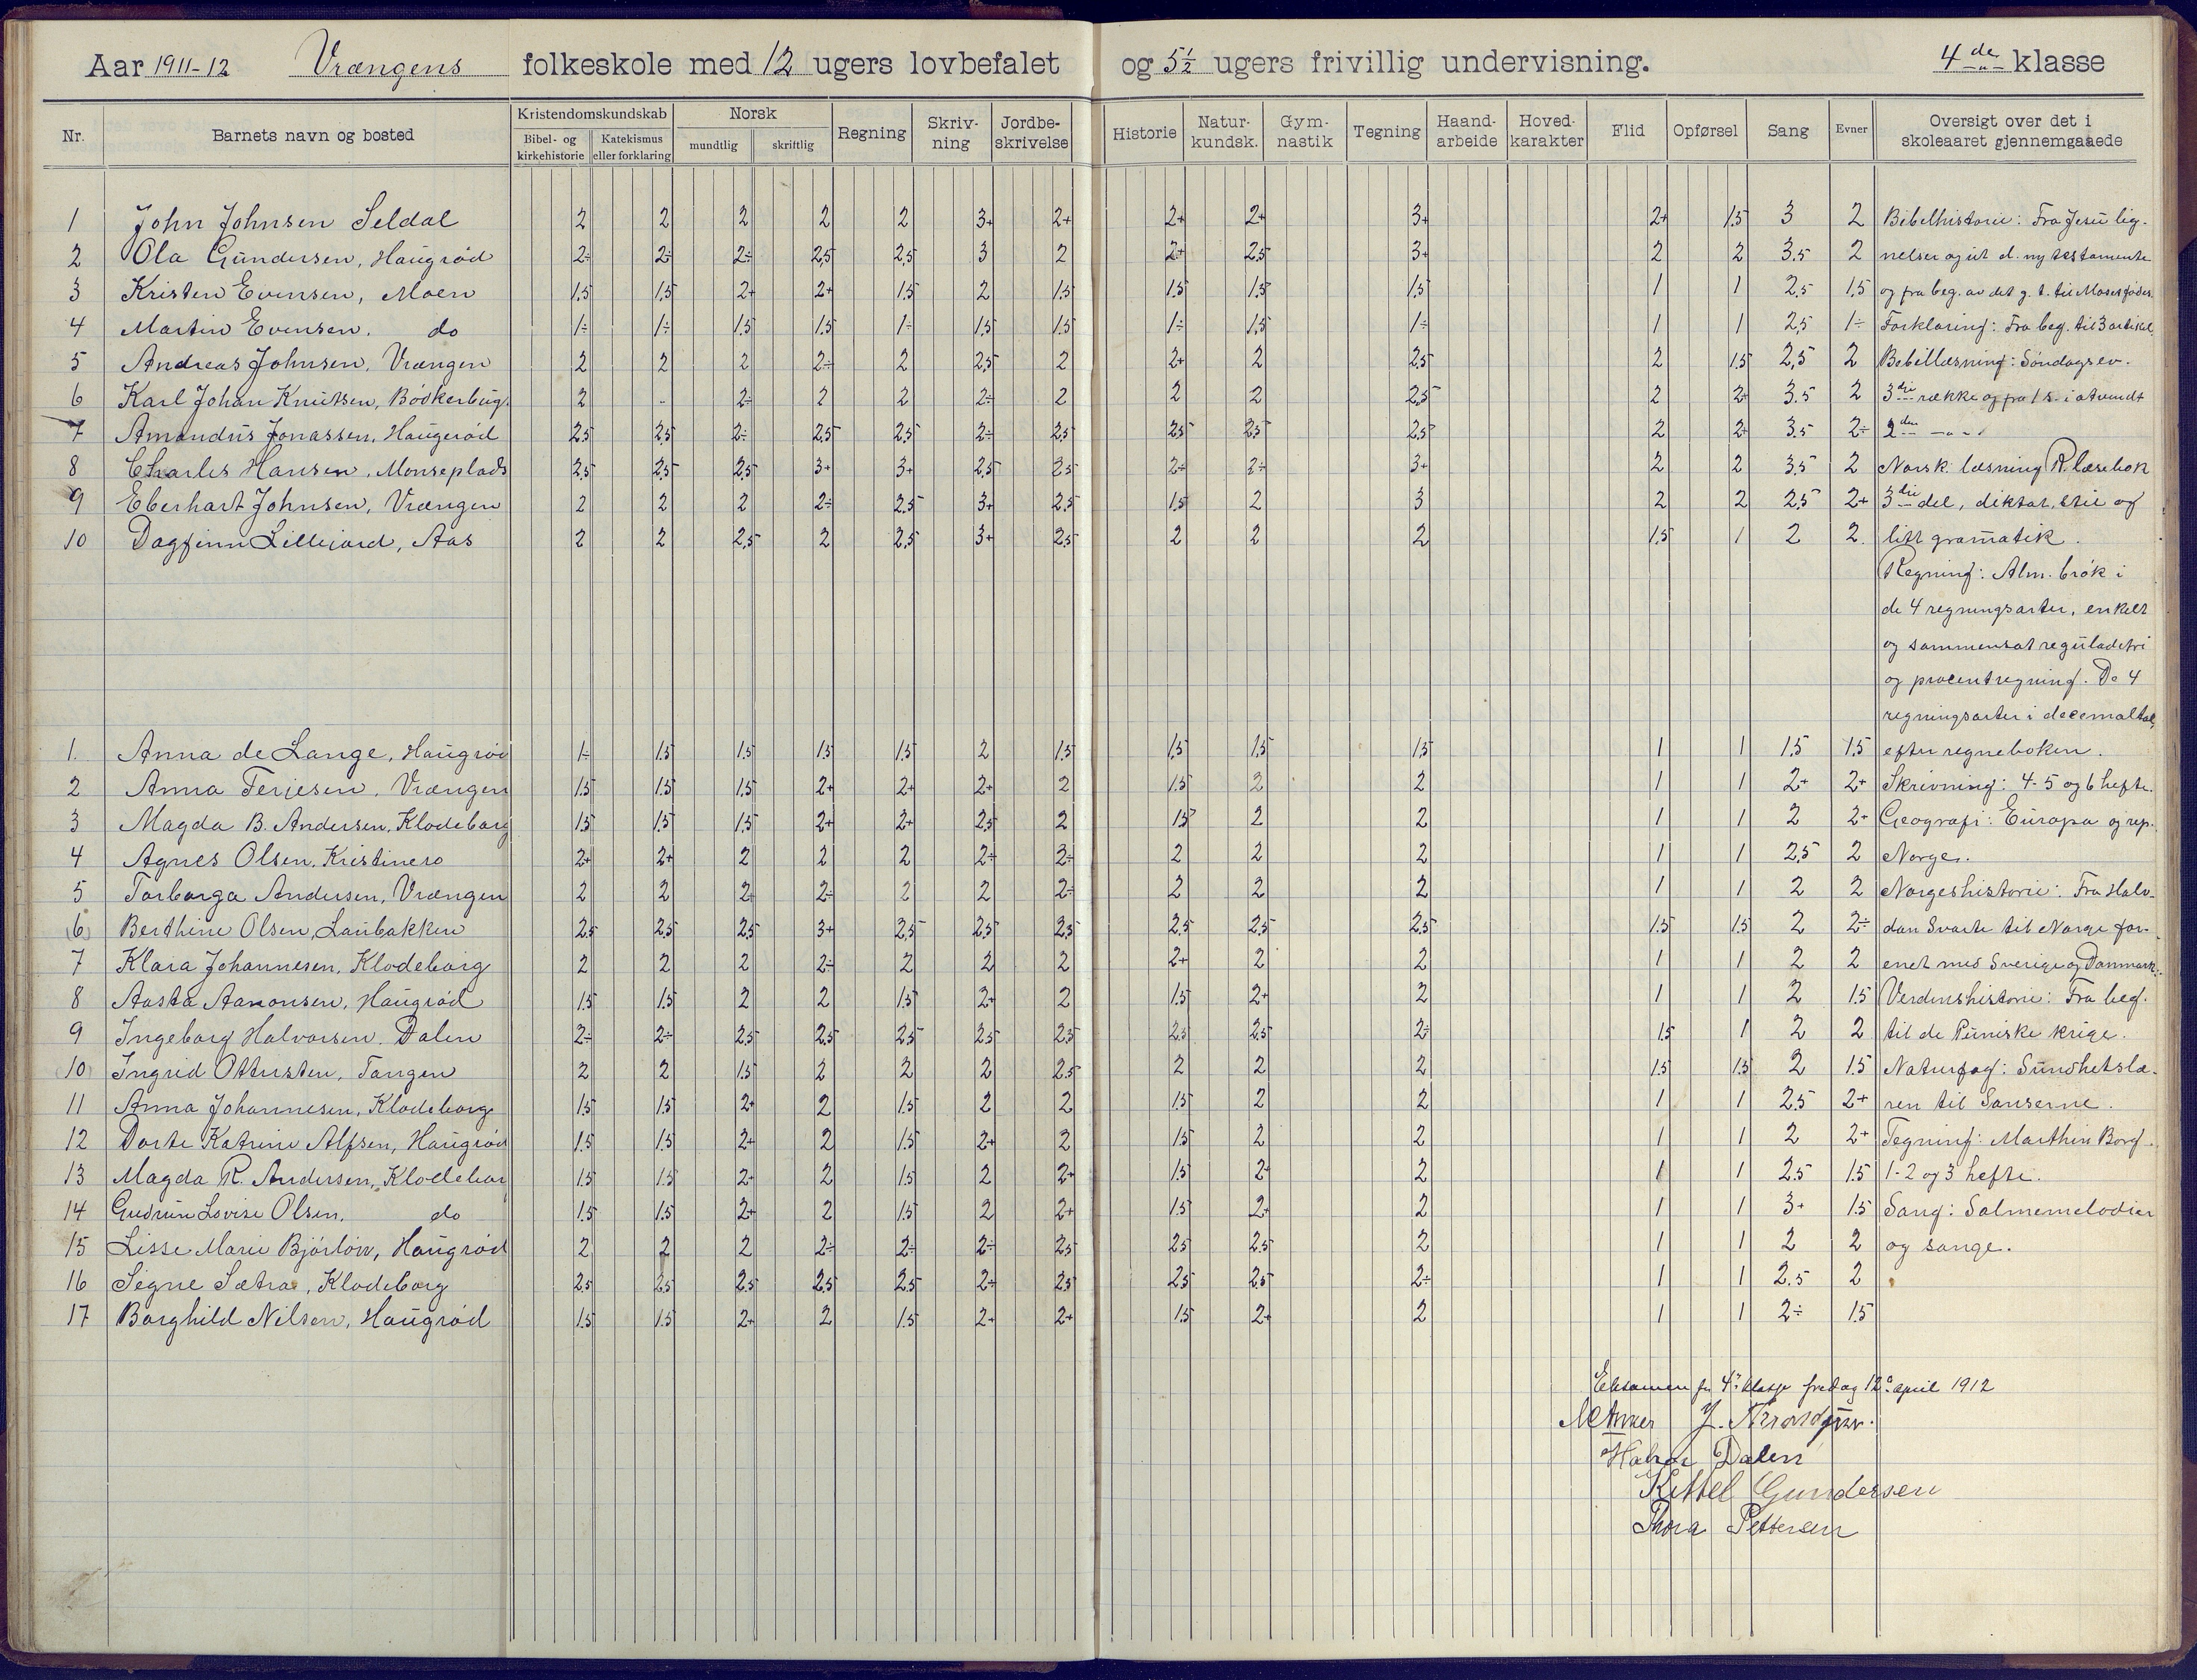 Aar 1911-12 Vrængens folkeskole med 12 ugers lovbefalet og 5½ ugers frivillig undervisning. 4de klasse
Nr. Barnets navn og bosted Kristendomskundskab Bibel- og kirkehistorie Katekismus eller forklaring Norsk mundtlig skriftlig Regning Skriv-ning Jordbe-skrivelse Historie Natur-kundsk. Gym-nastik Tegning Haand-arbeide Hoved-karakter Flid Opførsel Sang Evner Oversigt over det i skoleaaret gjennemgaaede
1 John Johnsen Seldal 2 2 2 2 2 3+ 2+ 2+ 2+ 3+ 2+ 1.5 3 2 Bibelhistorie: Fra Jesu lig-
2 Ola Gundersen, Haugrød 2÷ 2÷ 2÷ 2,5 2,5 3 2 2+ 2,5 3+ 2 2 3.5 2 nelser og ut d. ny testamente
3 Kristen Evensen, Moen 1,5 1,5 2+ 2+ 1,5 2 1.5 1.5 1.5 1.5 1 1 2,5 1,5 og fra beg. av det g. t. til Moses fødes.
4 Martin Evensen. do 1÷ 1÷ 1.5 1.5 1÷ 1.5 1.5 1÷ 1,5 1÷ 1 1 2,5 1÷ Forklaring: Fra beg. til 3 artikel,
5 Andreas Johnsen, Vrængen 2 2 2 2÷ 2 2,5 2 2+ 2 2,5 2 1.5 2,5 2 Bibellæsning: Søndagsev.
6 Karl Johan Knutsen, Bödkerbug. 2 - 2÷ 2 2 2÷ 2 2 2 2,5 2 2+ 3.5 2 3die række og fra 1 s. i atvendt
7 Amandus Jonassen, Haugerød 2,5 2,5 2÷ 2,5 2,5 2÷ 2,5 2,5 2,5 2,5 2 2+ 3.5 2÷ 2den - " -
8 Charles Hansen, Monseplads 2,5 2,5 2,5 3+ 3+ 2,5 2,5 2÷ 2÷ 3+ 2 2 3,5 2 Norsk: læsning R. læsebok
9 Eberhart Johnsen, Vrængen 2 2 2 2÷ 2.5 3+ 2.5 1.5 2 3 2 2 2,5 2+ 3die del, diktat, stil og
10 Dagfinn Lillejord, Aas 2 2 2,5 2 2,5 3+ 2,5 2 2 2 1,5 1 2 2. litt gramatik.
Regning: Alm. brøk i
de 4 regningsarter, enkelt
og sammensat reguladetri
og procentregning. De 4
regningsarter i decemaltal,
1. Anna de Lange, Haugrød 1÷ 1.5 1.5 1.5 1.5 2 1.5 1,5 1,5 1,5 1 1 1.5 1.5 efter regneboken.
2 Anna Terjesen, Vrængen 1.5 1.5 1,5 2+ 2+ 2+ 2 1.5 2 2 1 1 2+ 2+ Skrivning: 4-5 og 6 hefte.
3 Magda B. Andersen, Klodeborg 1.5 1.5 1,5 2+ 2+ 2,5 2 1.5 2 2 1 1 2 2+ Geografi: Europa og rep.
4 Agnes Olsen, Kristinero 2+ 2+ 2 2 2 2÷ 2÷ 2 2 2 1 1 2,5 2 Norge.
5 Torborga Andersen, Vrængen 2 2 2+ 2÷ 2 2 2÷ 2 2 2 1 1 2 2 Norgeshistorie: Fra Halv-
(6) Berthine Olsen, Laubakken 2,5 2,5 2,5 3+ 2,5 2,5 2,5 2,5 2,5 2,5 1.5 1.5 2 2÷ dan Svarte til Norge for-
7 Klara Johannesen, Klodeborg 2 2 2 2÷ 2 2 2 2+ 2 2 1 1 2 2 enet med Sverige og Danmark.
8 Aasta Aanonsen, Haugrød 1.5 1.5 2 2 1.5 2+ 2 1.5 2+ 2 1 1 2 1.5 Verdenshistorie: Fra beg.
9 Ingeborg Halvorsen. Dalen 2÷ 2÷ 2,5 2,5 2,5 2,5 2,5 2,5 2,5 2÷ 1.5 1 2 2 til de Puniske krige.
(10) Ingrid Ottersten, Tangen 2 2 1.5 2 2 2 2.5 2 2 2 1.5 1.5 2 1.5 Naturfag: Sundhetslæ-
11 Anna Johannesen, Klodeborg 1.5 1.5 2+ 2 1.5 2 2 1.5 2 2 1 1 2.5 2+ ren til Sanserne.
12 Dorte Katrine Alfsen, Haugrød 1.5 1.5 2+ 2 1.5 2+ 2 1.5 2 2 1 1 2 2+ Tegning: Marthin Borg.
13 Magda R. Andersen, Klodebor 1.5 1.5 2+ 2 1.5 2 2+ 1.5 2+ 2 1 1 2.5 1.5 1-2 og 3 hefte.
14 Gudrun Lovise Olsen. do 1.5 1.5 2+ 2 1.5 2 2+ 1.5 2+ 2 1 1 3+ 1.5 Sang: Salmemelodier
15 Lisse Marie Bjórlów, Haugrød 2 2 2 2÷ 2÷ 2÷ 2,5 2,5 2.5 2 1 1 2 2 og sange.
16 Signe Sætra, Klodeborg 2.5 2.5 2.5 2.5 2.5 2÷ 2.5 2.5 2.5 2÷ 1 1 2.5 2
17 Borghild Nilsen, Haugrød 1.5 1.5 2+ 2 1.5 2+ 2+ 1.5 2+ 2 1 1 2÷ 1.5
Eksamen for 4de klasse fredag 12te april 1912
Halvor Dalen
Kittel Gundersen
Thora Pettersen